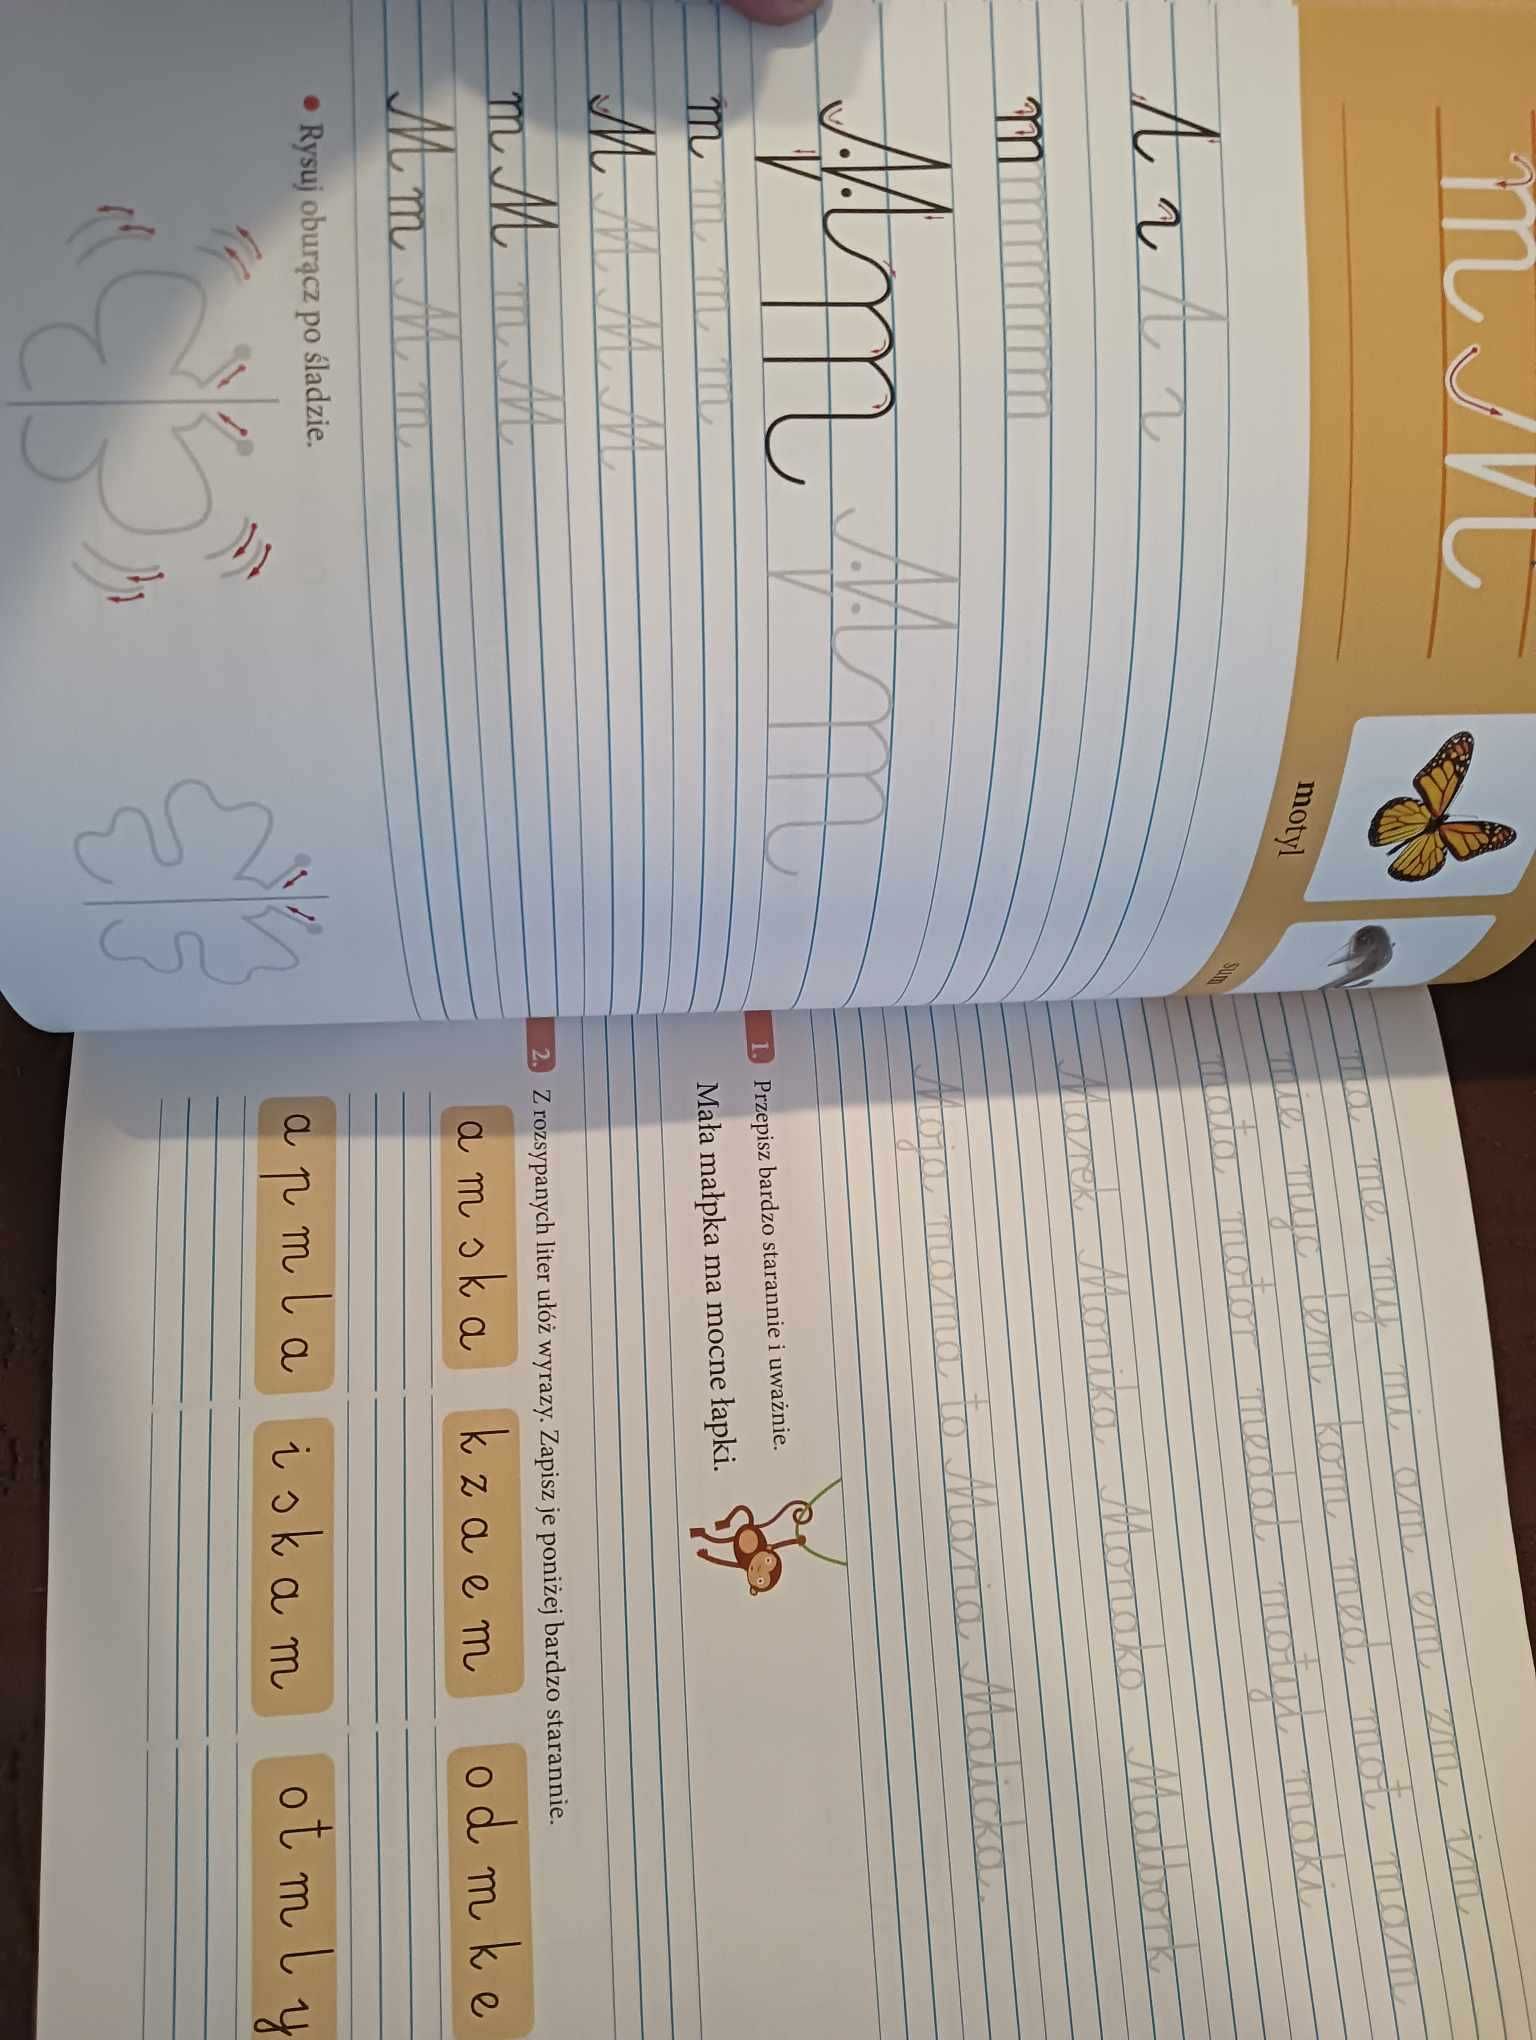 m M
motyl
sum
M m M m
m m m m m m
M m M m
m m m m
M M M M
m M m M
M m M m
• Rysuj oburącz po śladzie.
ma me my mi am em zm im
mie myc tem kom med mot mam
mata motor medal motyl maki
Marek Monika Monako Malbork
Moja mama to Maria Malicka.
1. Przepisz bardzo starannie i uważnie.
Mała małpka ma mocne łapki.
2. Z rozsypanych liter ułóż wyrazy. Zapisz je poniżej bardzo starannie.
a m s k a k z a e m o d m k e
a p m l a i s k a m o t m l y